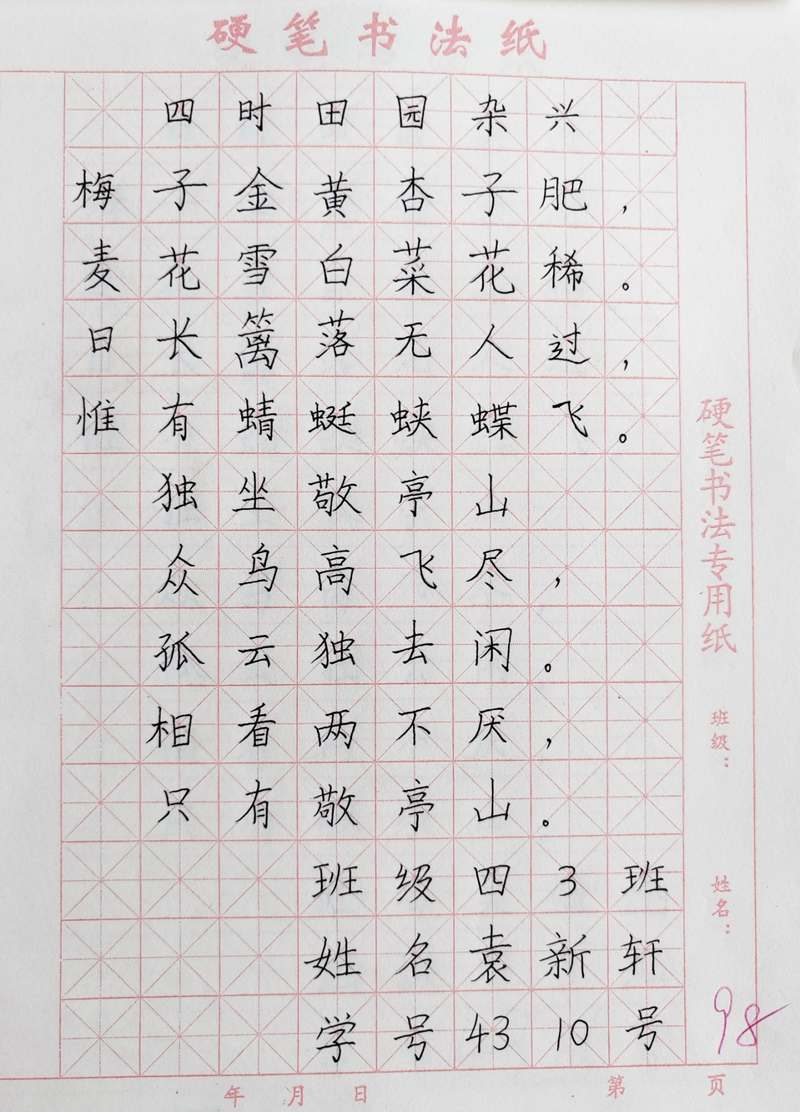 硬笔书法纸
四时田园杂兴
梅子金黄杏子肥，
麦花雪白菜花稀。
日长篱落无人过，
惟有蜻蜓蛱蝶飞。
独坐敬亭山
众鸟高飞尽，
孤云独去闲。
相看两不厌，
只有敬亭山。
班级四3班
姓名袁新轩
学号4310号
硬笔书法专用纸
班级：
姓名：
98
年月日
第页